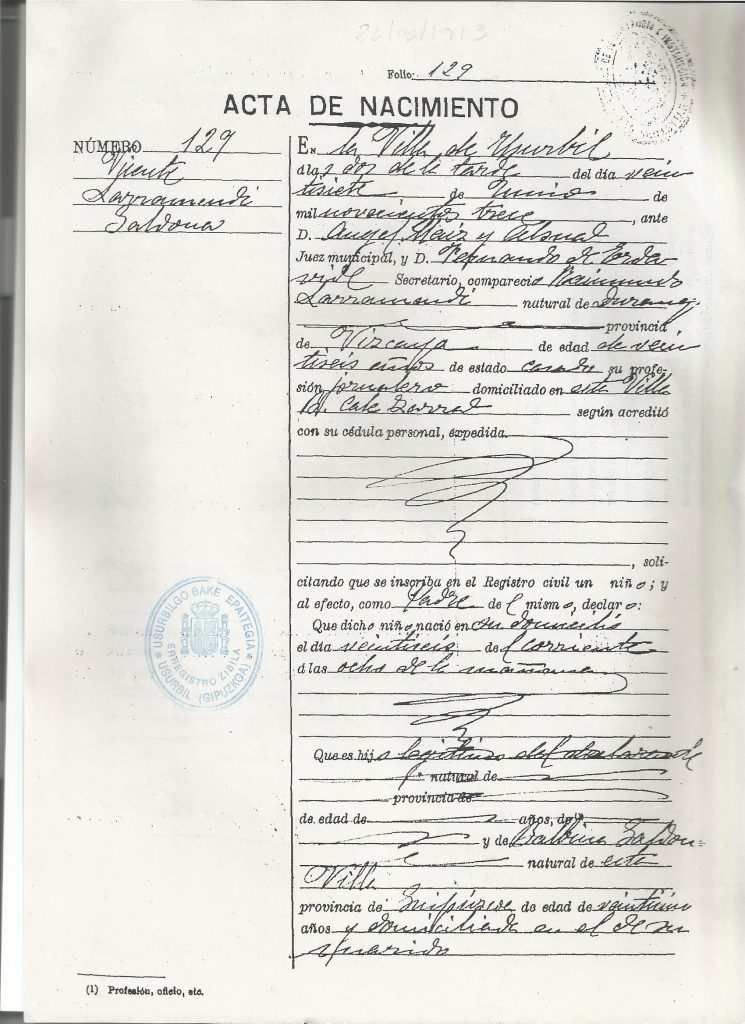 26/06/1913
Folio: 129
ACTA DE NACIMIENTO
NÚMERO 129
Vicente
Larramendi
Saldona
En la Villa de Usurbil
á las dos de la tarde del día vein
tisiete de Junio de
mil novecientos trece, ante
D. Angel Maiz y
Juez municipal, y D. Fernando de
Secretario, compareció Raimundo
Larramendi natural de Durango
provincia
de Vizcaya de edad de vein
tiseis años de estado casado su profe-
sión jornalero domiciliado en esta Villa
según acreditó
con su cédula personal, expedida
, soli-
citando que se inscriba en el Registro civil un niño; y
al efecto, como Padre del mismo, declaro:
Que dicho niño nació en su domicilio
el día veintiseis del corriente
á las ocho de la mañana
Que es hijo legitimo del declarante
natural de
provincia de
de edad de años, de
y de Balbina Saldon=
natural de esta
Villa
provincia de Guipúzcoa de edad de
años y domiciliada en el de su
marido
(1) Profesión, oficio, etc.
* USURBILGO BAKE EPAITEGIA *
ERREGISTRO ZIBILA
USURBIL (GIPUZKOA)